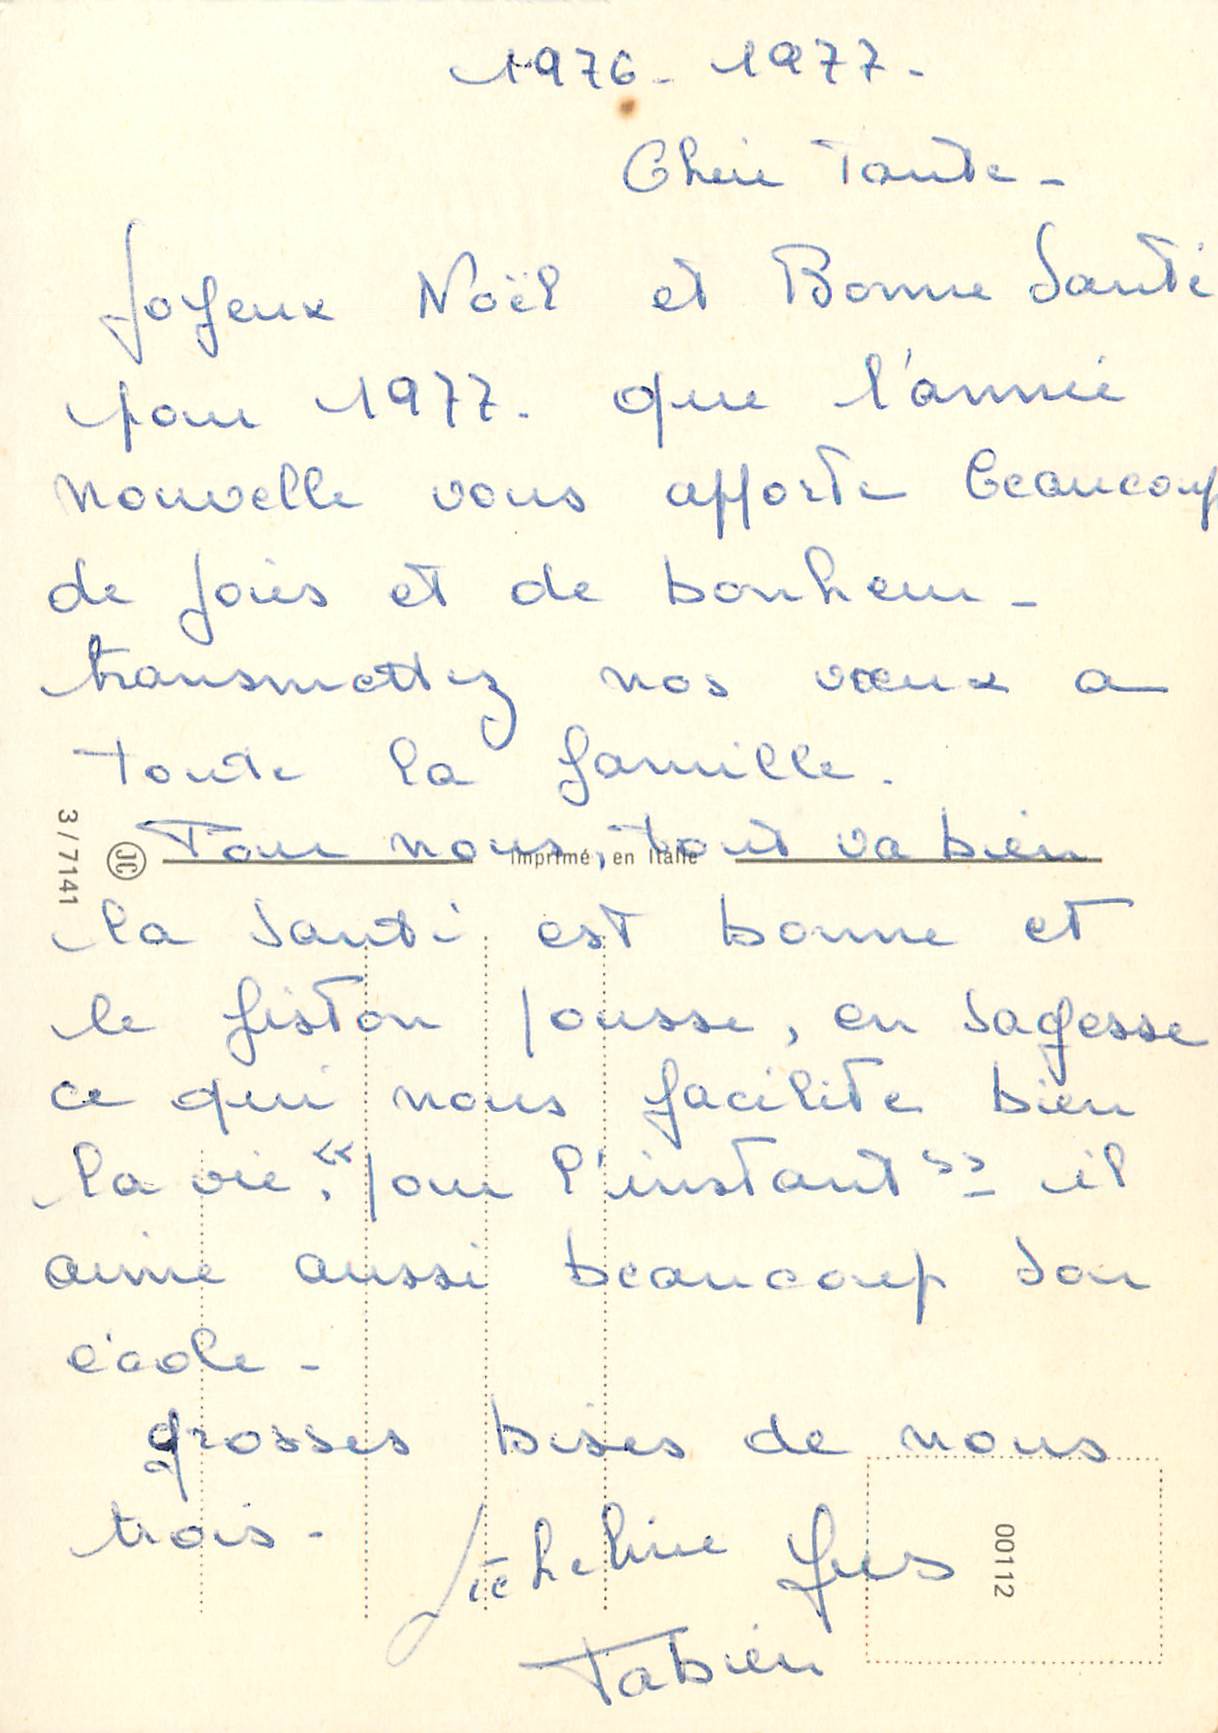 1976 - 1977 -
Chère Tante -
Joyeux Noël et Bonne Santé
pour 1977. que l'année
nouvelle vous apporte beaucoup
de joies et de bonheur -
transmettez nos vœux a
toute la famille.
3/7141
JC
Imprimé en Italie
Pour nous, tout va bien
la santé est bonne et
le fiston pousse, en sagesse
ce qui nous facilite bien
la vie, "pour l'instant" - il
aime aussi beaucoup son
école -
grosses bises de nous
trois -
00112
Fabien